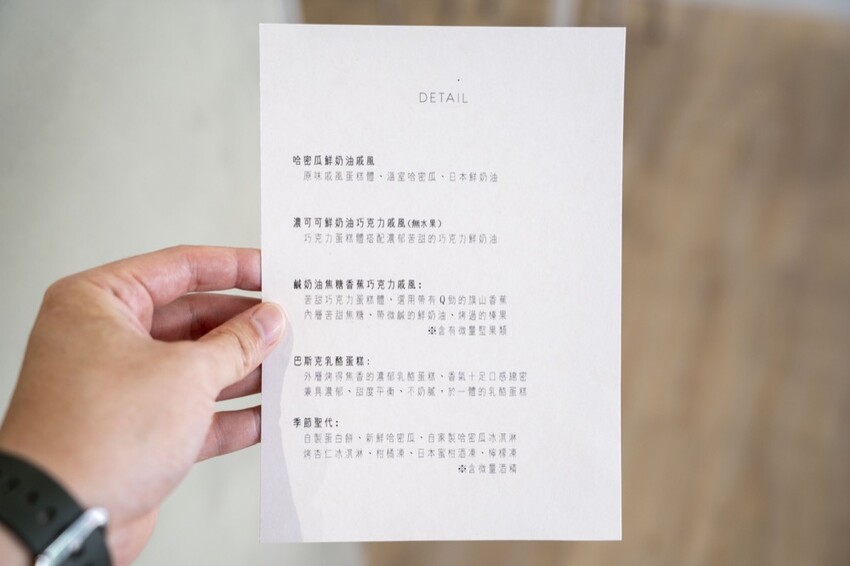 DETAIL
哈密瓜鮮奶油戚風
原味戚風蛋糕體、溫室哈密瓜、日本鮮奶油
濃可可鮮奶油巧克力戚風(無水果)
巧克力蛋糕體搭配濃郁苦甜的巧克力鮮奶油
鹹奶油焦糖香蕉巧克力戚風:
苦甜巧克力蛋糕體、選用帶有Q勁的旗山香蕉
內層苦甜焦糖、帶微鹹的鮮奶油、烤過的榛果
※含有微量堅果類
巴斯克乳酪蛋糕:
外層烤得焦香的濃郁乳酪蛋糕、香氣十足口感綿密
兼具濃郁、甜度平衡、不奶膩、於一體的乳酪蛋糕
季節聖代:
自製蛋白餅、新鮮哈密瓜、自家製哈密瓜冰淇淋
烤杏仁冰淇淋、柑橘凍、日本蜜柑酒凍、檸檬凍
※含微量酒精